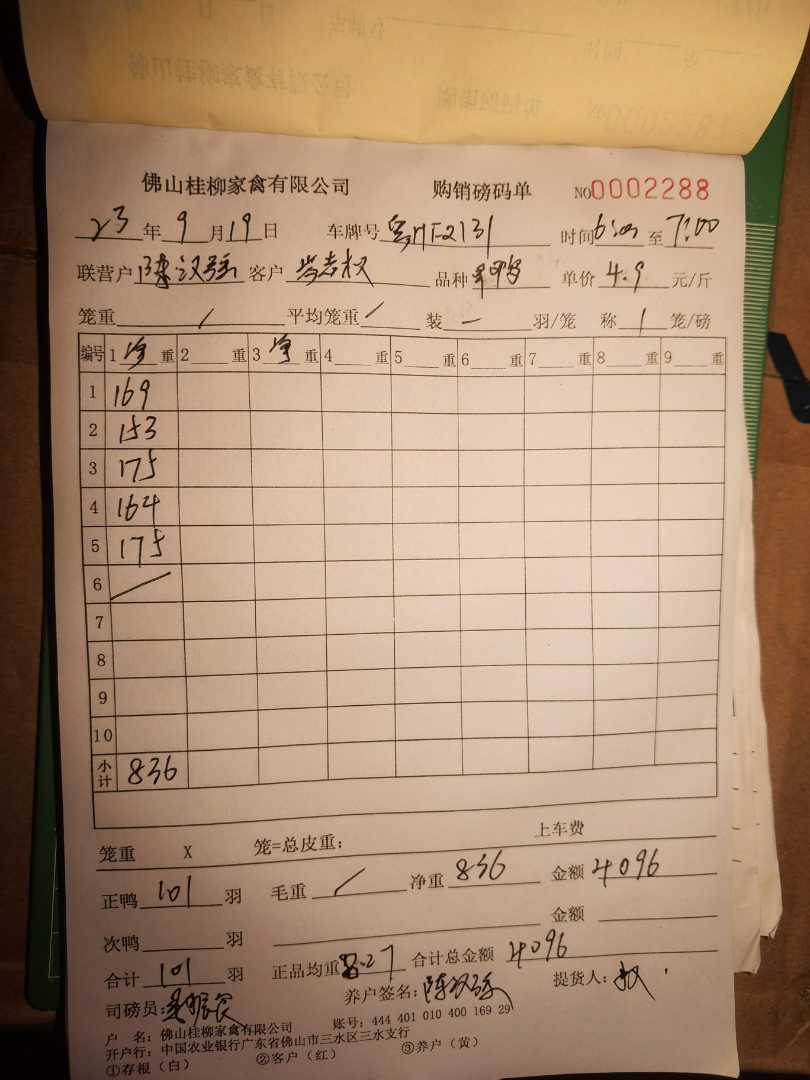 佛山桂柳家禽有限公司 购销磅码单 NO0002288
23年9月19日 车牌号粤HF2131 时间6:00至7:00
联营户陈汉强 客户 权 品种 鸭 单价4.9元/斤
笼重 / 平均笼重 / 装 一 羽/笼 称 1 笼/磅
编号 1净重 2 重 3净重 4 重 5 重 6 重 7 重 8 重 9 重
1 169
2 153
3 175
4 164
5 175
6 /
7
8
9
10
小计 836
笼重 X 笼=总皮重: 上车费
正鸭 101 羽 毛重 / 净重 836 金额 4096
次鸭 羽 金额
合计 101 羽 正品均重 8.27 合计总金额 4096
司磅员: 养户签名:陈汉强 提货人:权
户 名:佛山桂柳家禽有限公司 账号:444 401 010 400 169 29
开户行:中国农业银行广东省佛山市三水区三水支行
①存根(白) ②客户(红) ③养户(黄)